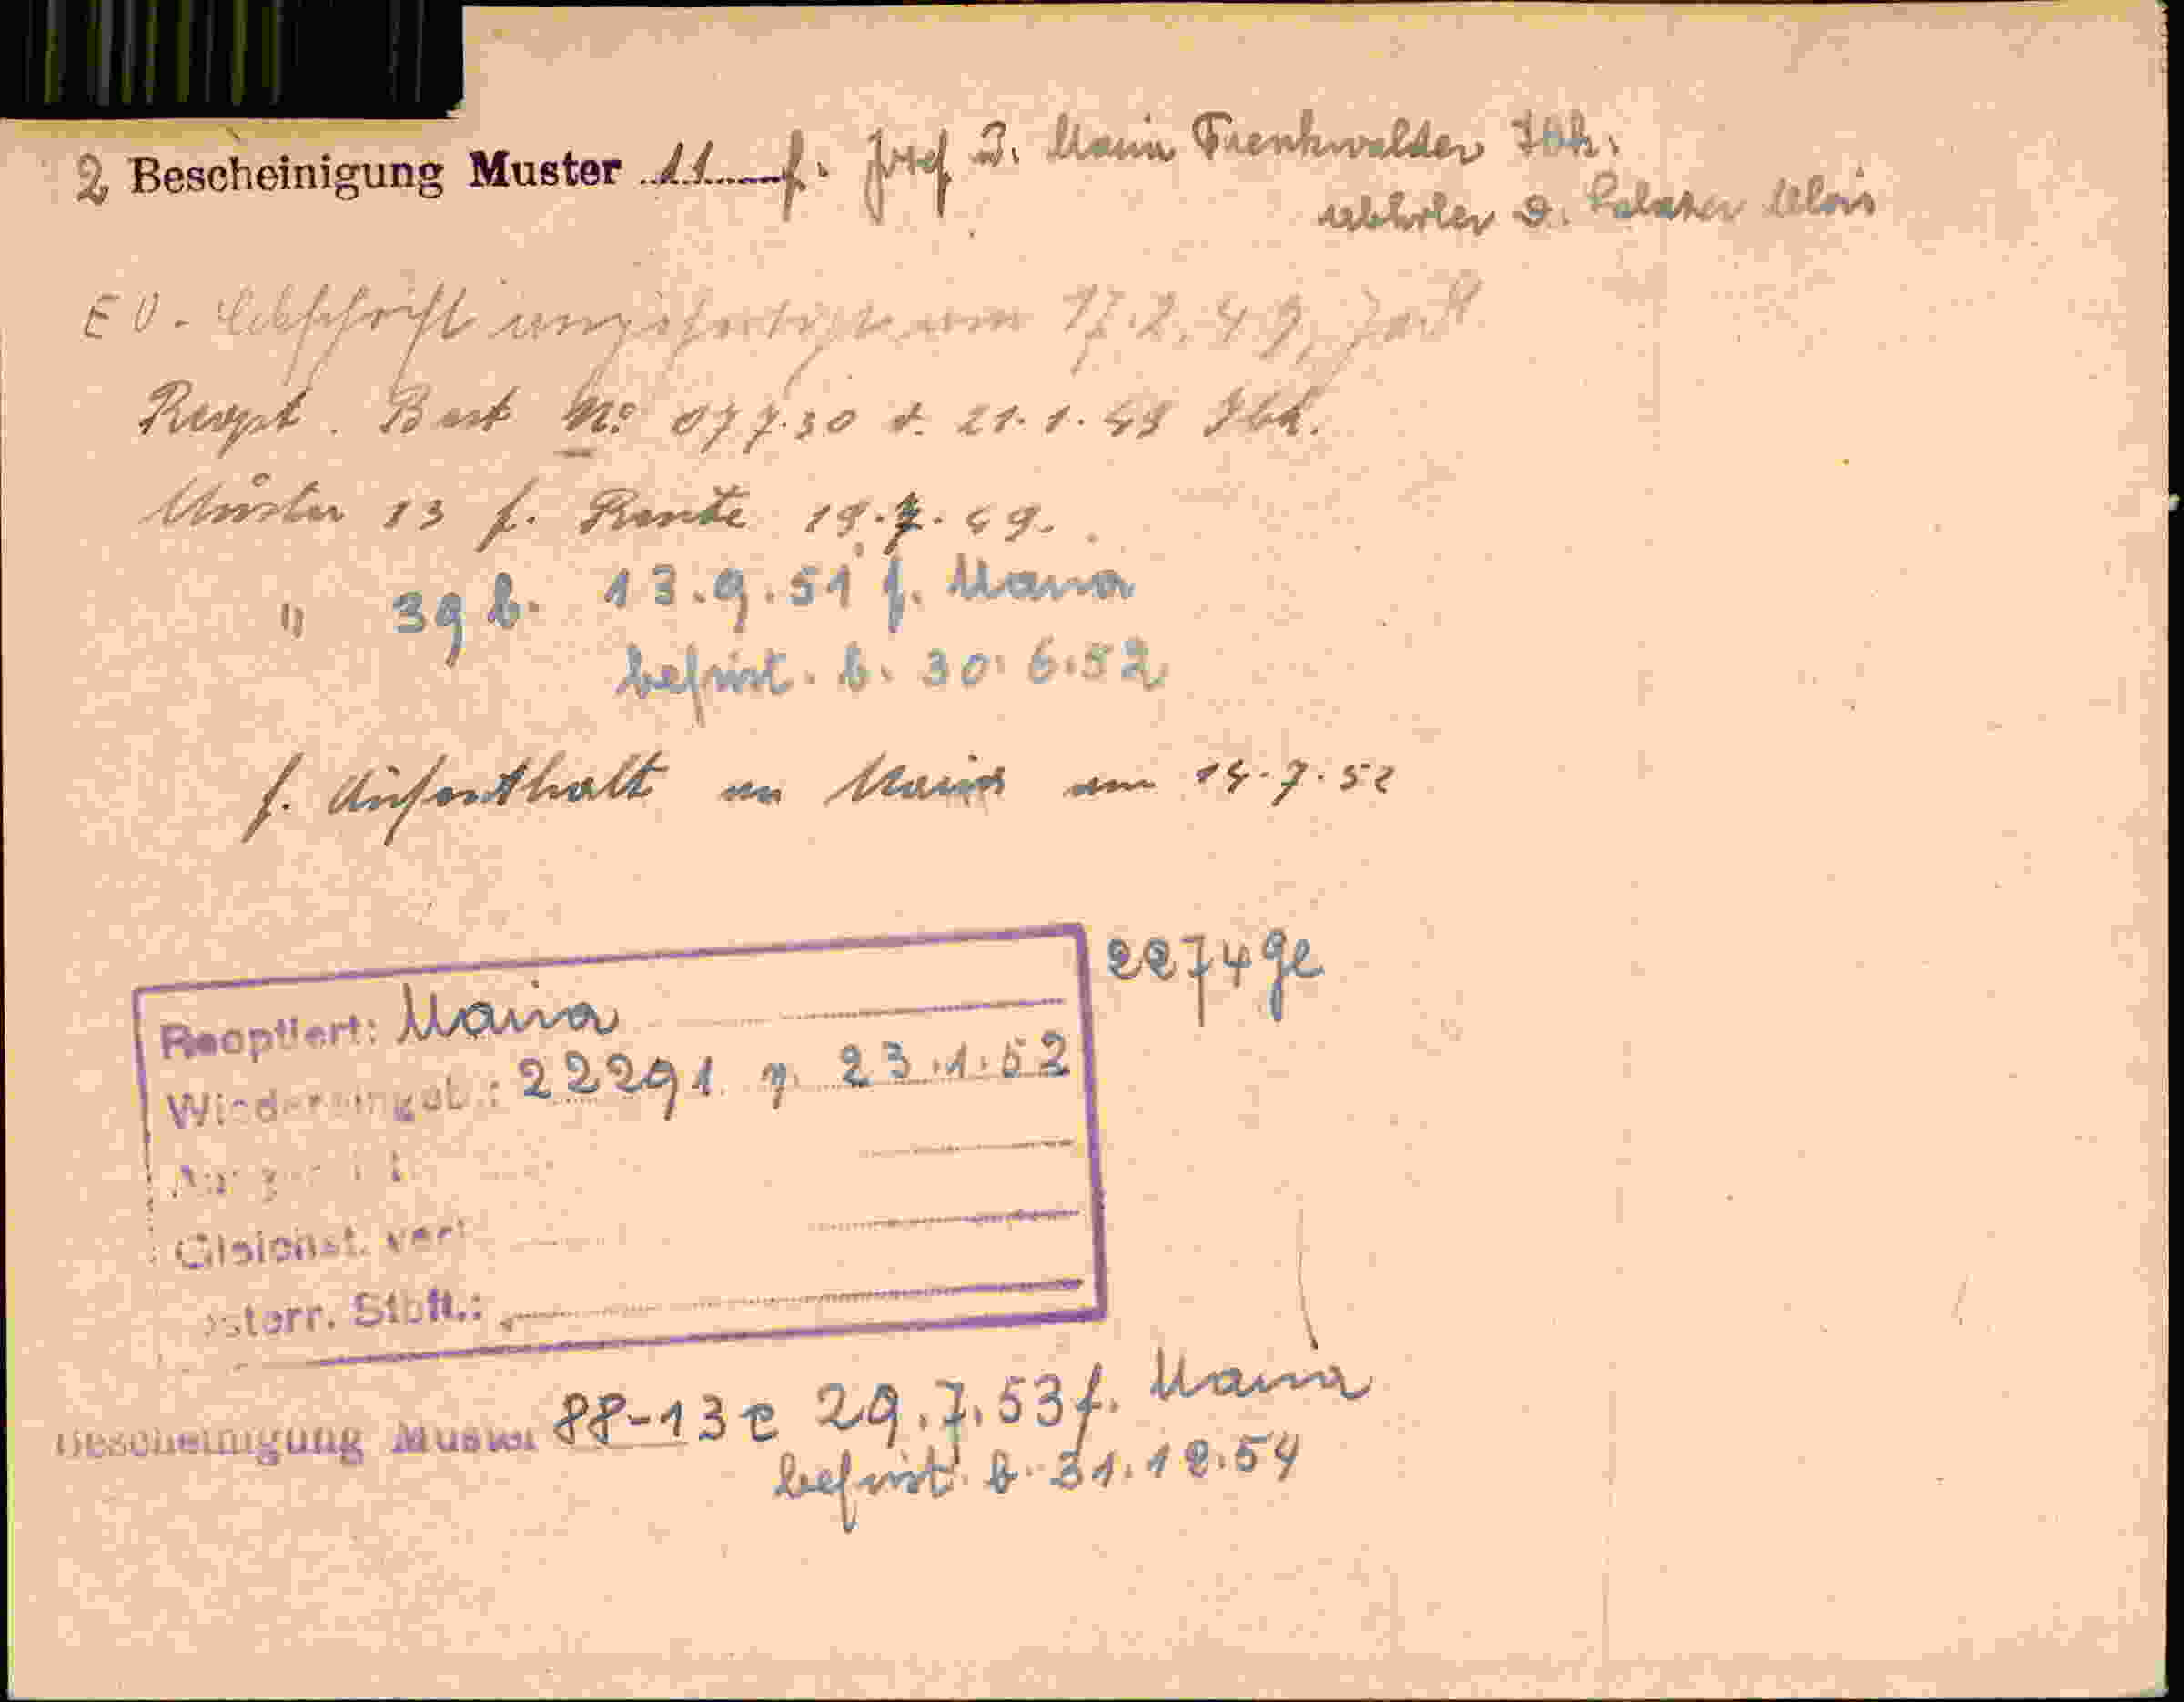 2 Bescheinigung Muster 11 f. Josef u. Maria Trenkwalder Ibk.
abholer d. Palaser Alois
EU - Abschrift ausgefertigt am 17.2.49,
Reopt. Best No 077.30 v. 21.1.49 Ibk.
Muster 13 f. Rente 19.7.49.
" 39 b. 13.9.51 f. Maria
befrist. b. 30.6.52
f. Aufenthalt an Maria am 14.7.52
2274ge
Reoptiert: Maria
Wiedereingeb.: 22291 v. 23.1.52
Gleichst. verl
österr. Stbft.:
Bescheinigung Muster 88-13e 29.7.53 f. Maria
befrist. b. 31.12.54